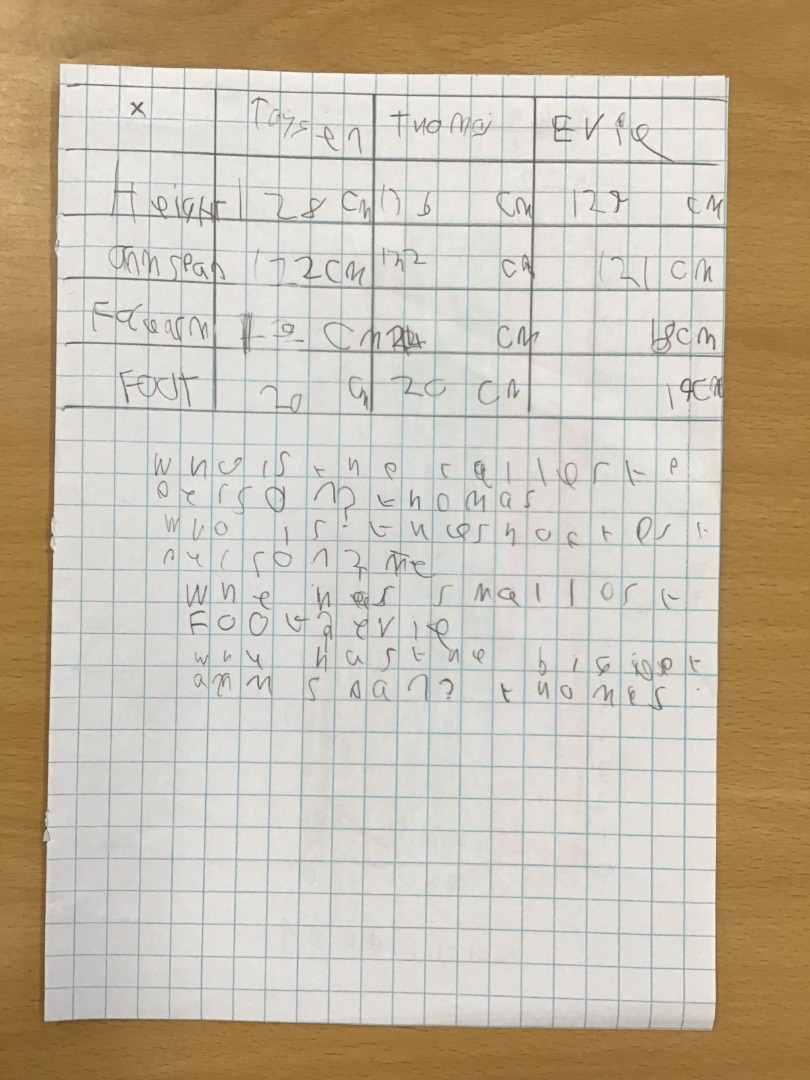 x Taysen thomas Evie
Height 128 cm 136 cm 129 cm
armspan 122cm 132 cm 121 cm
cm cm 18cm
Foot 20 cm 20 cm 19cm
who is the tallest
person? thomas
who is? the shortest
person? me
who has smallest
Foot? evie
who has the bigget
arm span? thomas